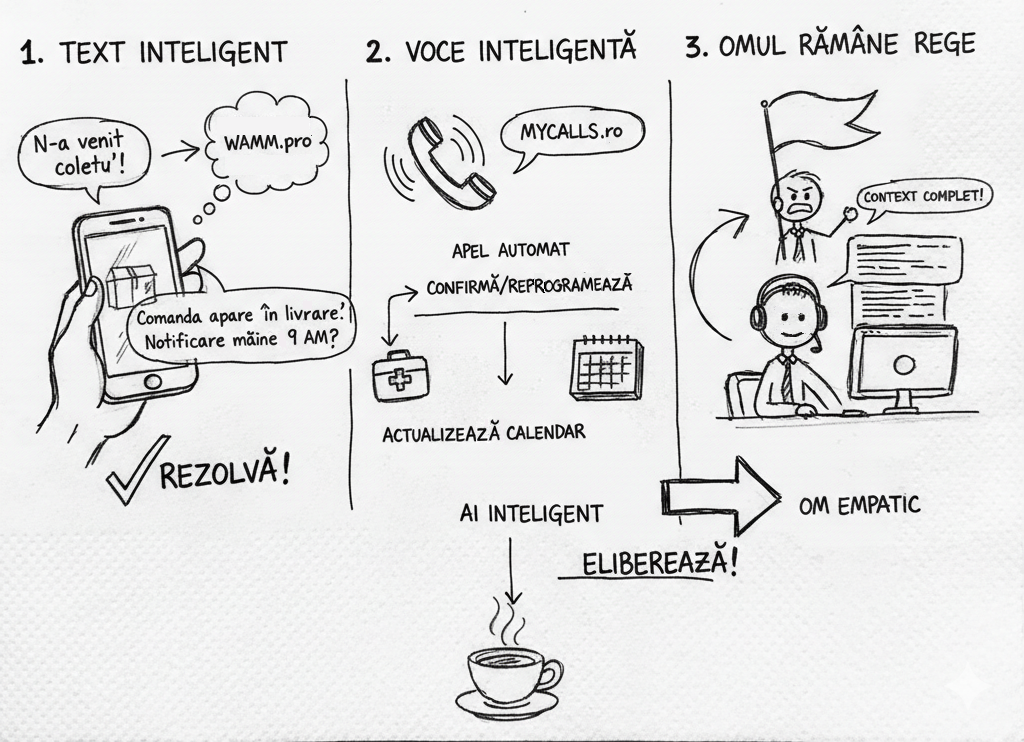 1. TEXT INTELIGENT
N-a venit
coletu'!
WAMM.pro
Comanda apare în livrare.!
Notificare mâine 9 AM?
REZOLVĂ!
2. VOCE INTELIGENTĂ
MYCALLS.ro
APEL AUTOMAT
CONFIRMĂ/REPROGRAMEAZĂ
ACTUALIZEAZĂ CALENDAR
3. OMUL RĂMÂNE REGE
CONTEXT COMPLET!
AI INTELIGENT
OM EMPATIC
ELIBEREAZĂ!